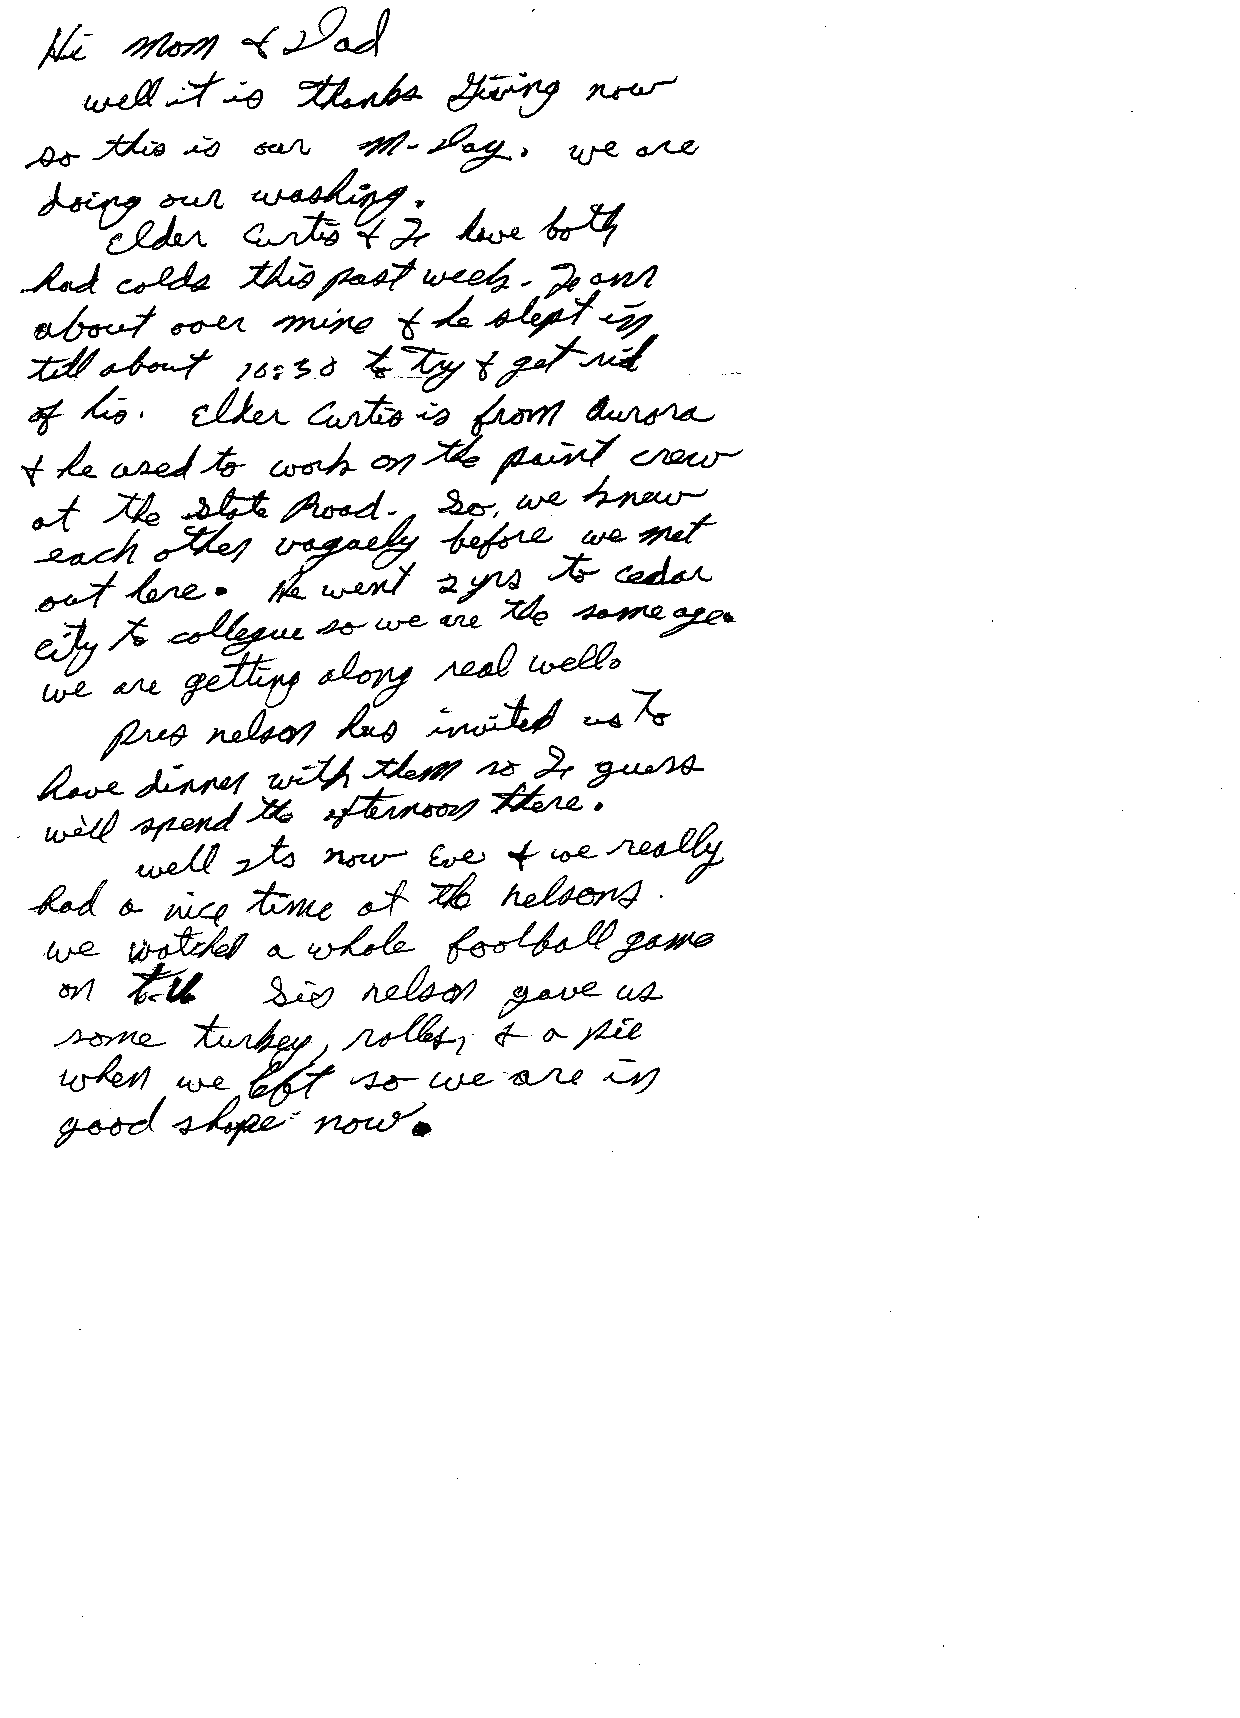 Hi Mom & Dad
well it is thanks Giving now
so this is our M-Day. we are
doing our washing.
Elder Curtis & I have both
had colds this past week. I am
about over mine & he slept in
till about 10:30 to try & get rid
of his. Elder Curtis is from Aurora
& he used to work on the paint crew
at the State Road. So, we knew
each other vaguely before we met
out here. He went 2 yrs to cedar
city to collegue so we are the same age.
we are getting along real well.
Pres nelson has invited us to
have dinner with them so I guess
we'll spend the afternoon there.
well Its now Eve & we really
had a nice time at the nelsons.
we watched a whole football game
on T.V. Sis nelson gave us
some turkey, rolls, & a pie
when we left so we are in
good shape now.